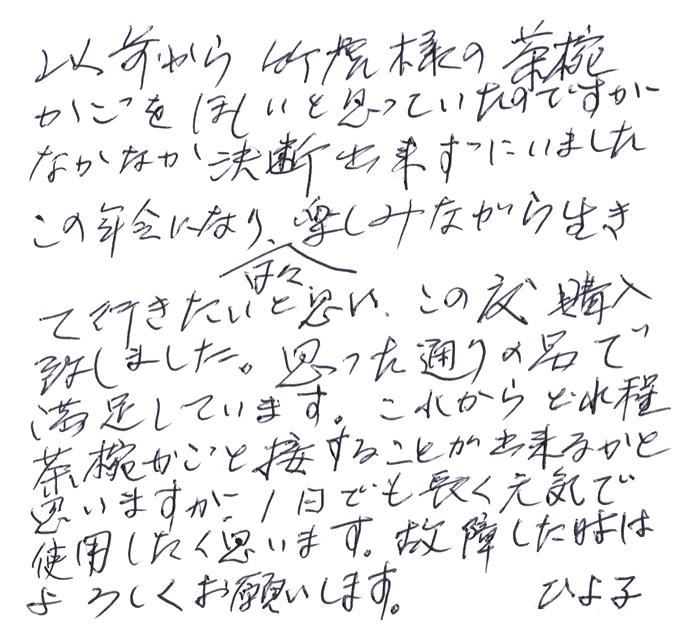 以前から竹虎様の茶椀
かごをほしいと思っていたのですが
なかなか決断出来ずにいました
この年令になり、日々楽しみながら生き
て行きたいと思い、この度購入
致しました。思った通りの品で
満足しています。これからどれ程
茶椀かごと接することが出来るかと
思いますが、1日でも長く元気で
使用したく思います。故障した時は
よろしくお願いします。 ひよ子